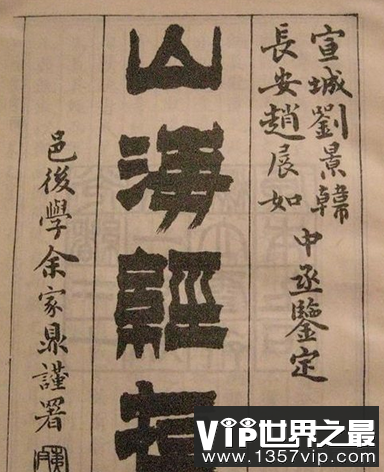 宣城劉景韓
長安趙展如
中丞鑒定
山海經存
邑後學余家鼎謹署
VIP世界之最
www.1357vip.com